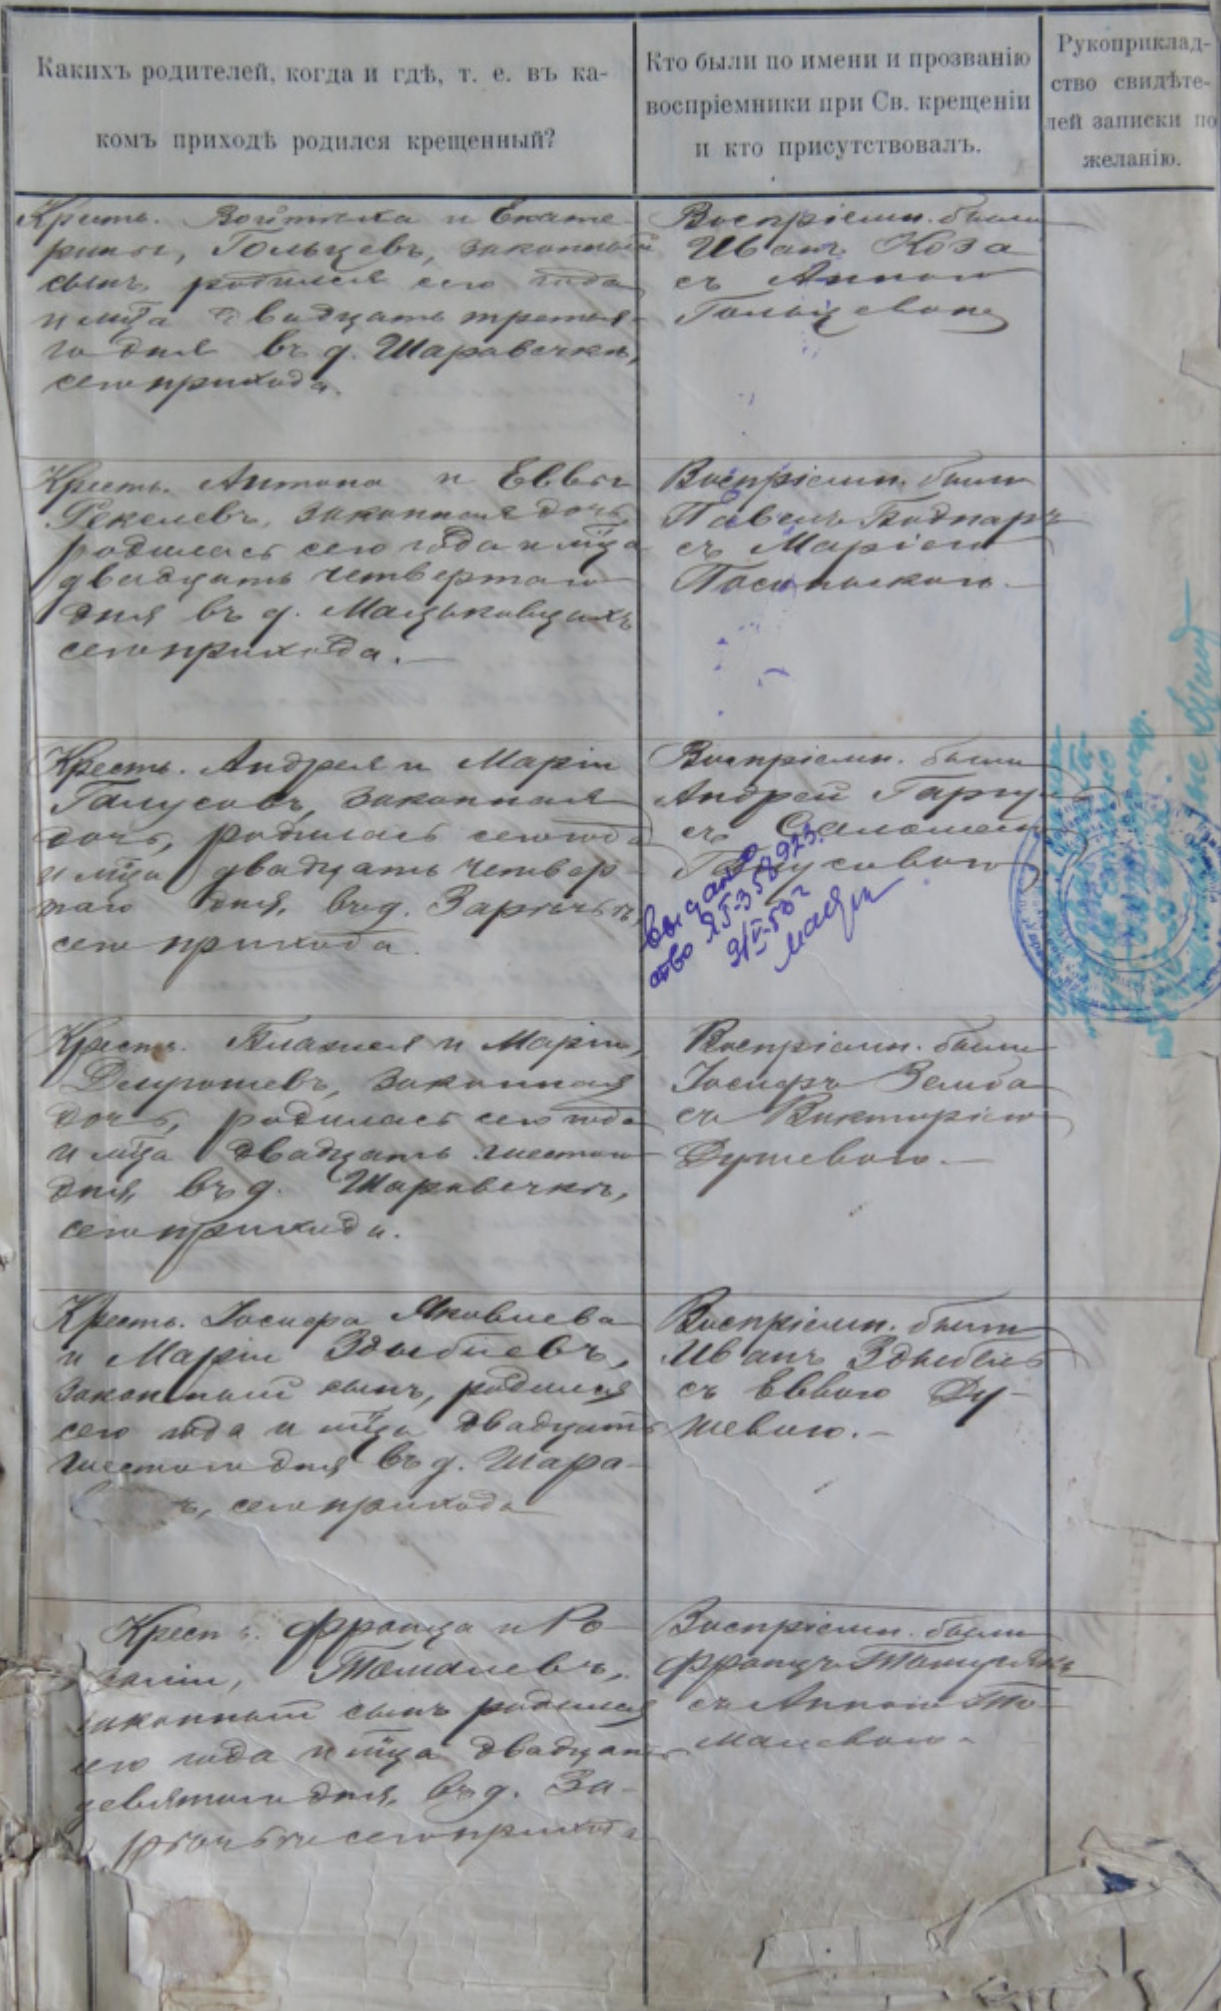 Какихъ родителей, когда и гдѣ, т. е. въ ка-
комъ приходѣ родился крещенный?
Кто были по имени и прозванію
воспріемники при Св. крещеніи
и кто присутствовалъ.
Рукоприклад-
ство свидѣте-
лей записки по
желанію.
Крестъ. Войтѣха и Екате-
рины, Гольцевъ, законный
сынъ, родился сего года
и мѣца двадцать третья-
го дня въ д. Шаровечкѣ,
сего прихода.
Воспріемн. были
Иванъ Коза
съ Анною
Гольцевою
Крестъ. Антона и Еввы
законная дочь,
родилась сего года и мѣца
двадцать четвертаго
дня въ д. Мацьковцахъ
сего прихода.
Воспріемн. были
Павелъ Боднаръ
съ Маріею
Крестъ. Андрея и Маріи
Галусовъ, законная
дочь, родилась сего года
и мѣца двадцать четвер-
таго дня, въ д. Зарѣчьѣ,
сего прихода.
Воспріемн. были
Андрей
съ Саломеею
Галусовою
Выдано
Крестъ. Блажея и Маріи,
законная
дочь, родилась сего года
и мѣца двадцать шестаго
дня, въ д. Шаровечкѣ,
сего прихода.
Воспріемн. были
Іосифъ Земба
съ Викторіею
Душевою.
Крестъ. Іосифа Яковлева
и Маріи Здыбліевъ,
законный сынъ, родился
сего года и мѣца двадцать
шестого дня въ д. Шара-
ѣ, сего прихода
Воспріемн. были
Иванъ
съ Еввою Ду-
шевою.
Крестъ. Франца и Ро-
заліи, Томалевъ,
законный сынъ родился
сего года и мѣца двадцать
девятого дня, въ д. За-
рѣчьѣ сего прихода
Воспріемн. были
Францъ
съ Анною То-
малевою.